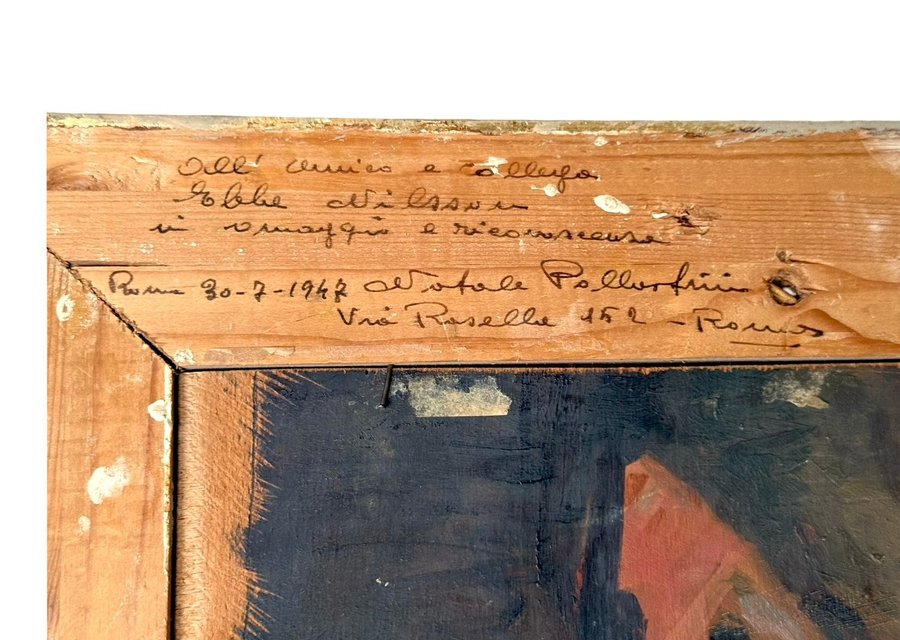 All' amico e collega
Ebbe Nilsson
in omaggio e riconoscenza
Roma 30-7-1947 Natale
Via Roselle 152 - Roma